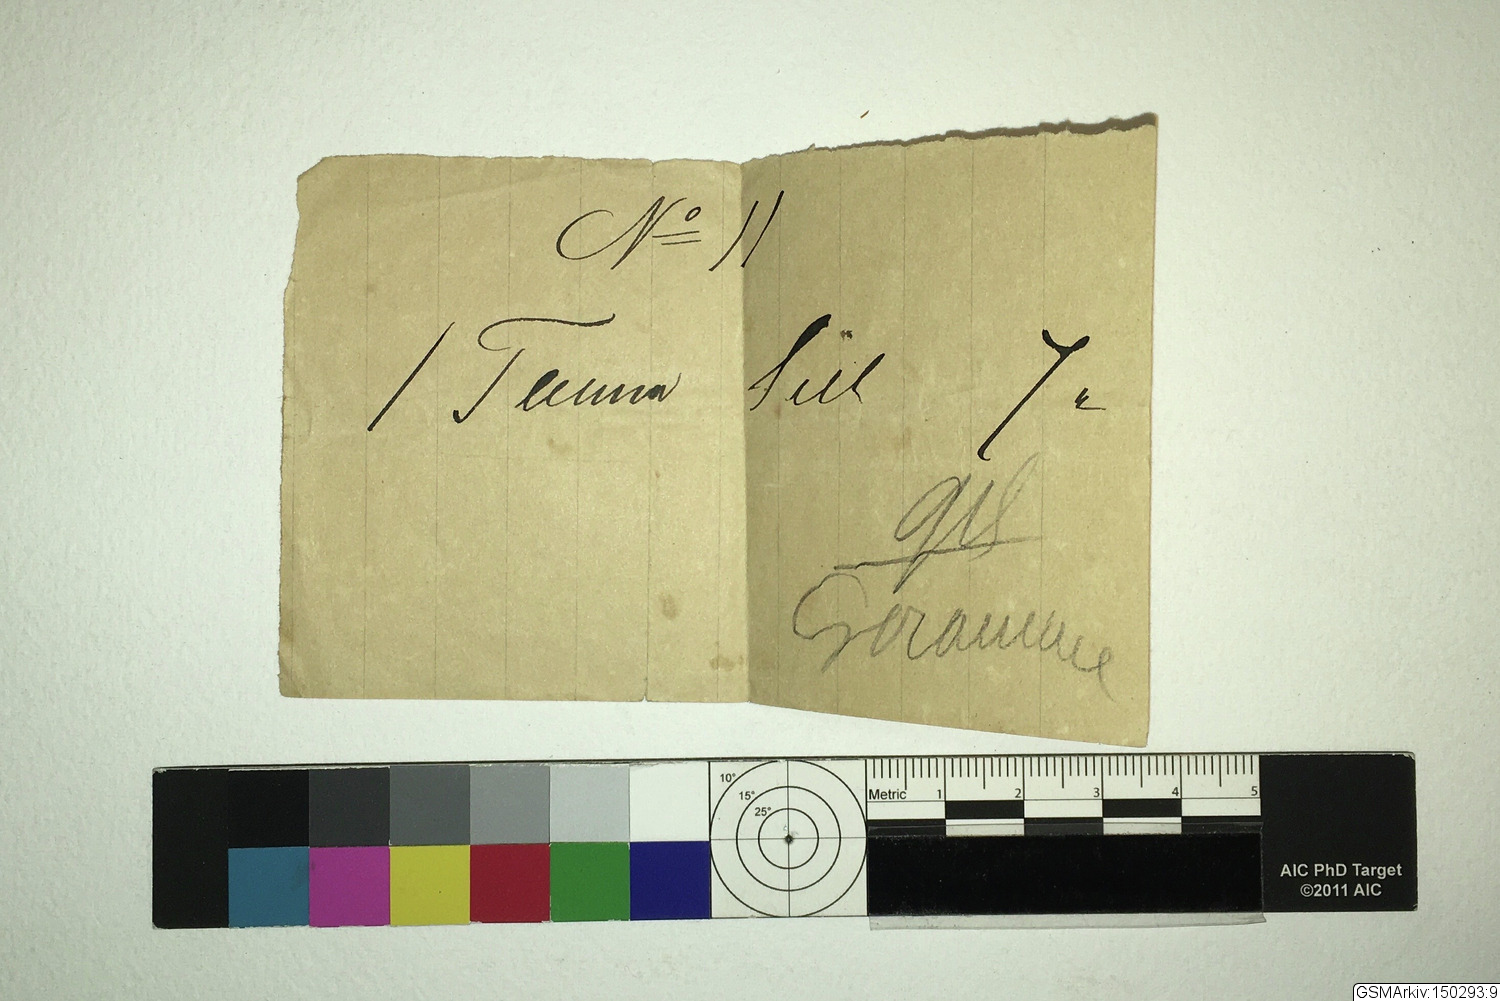 No 11
1 Tunna Sill 7 "
10°
15°
25°
Metric 1 2 3 4 5
AIC PhD Target
©2011 AIC
GSMArkiv:150293:9